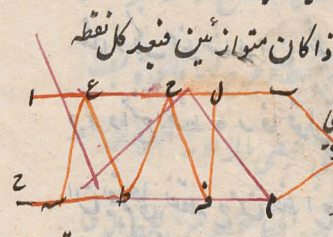 ذا كان متوازئين فبعد كل نقطه
ا ع ح ل ب
ح س ط ف م